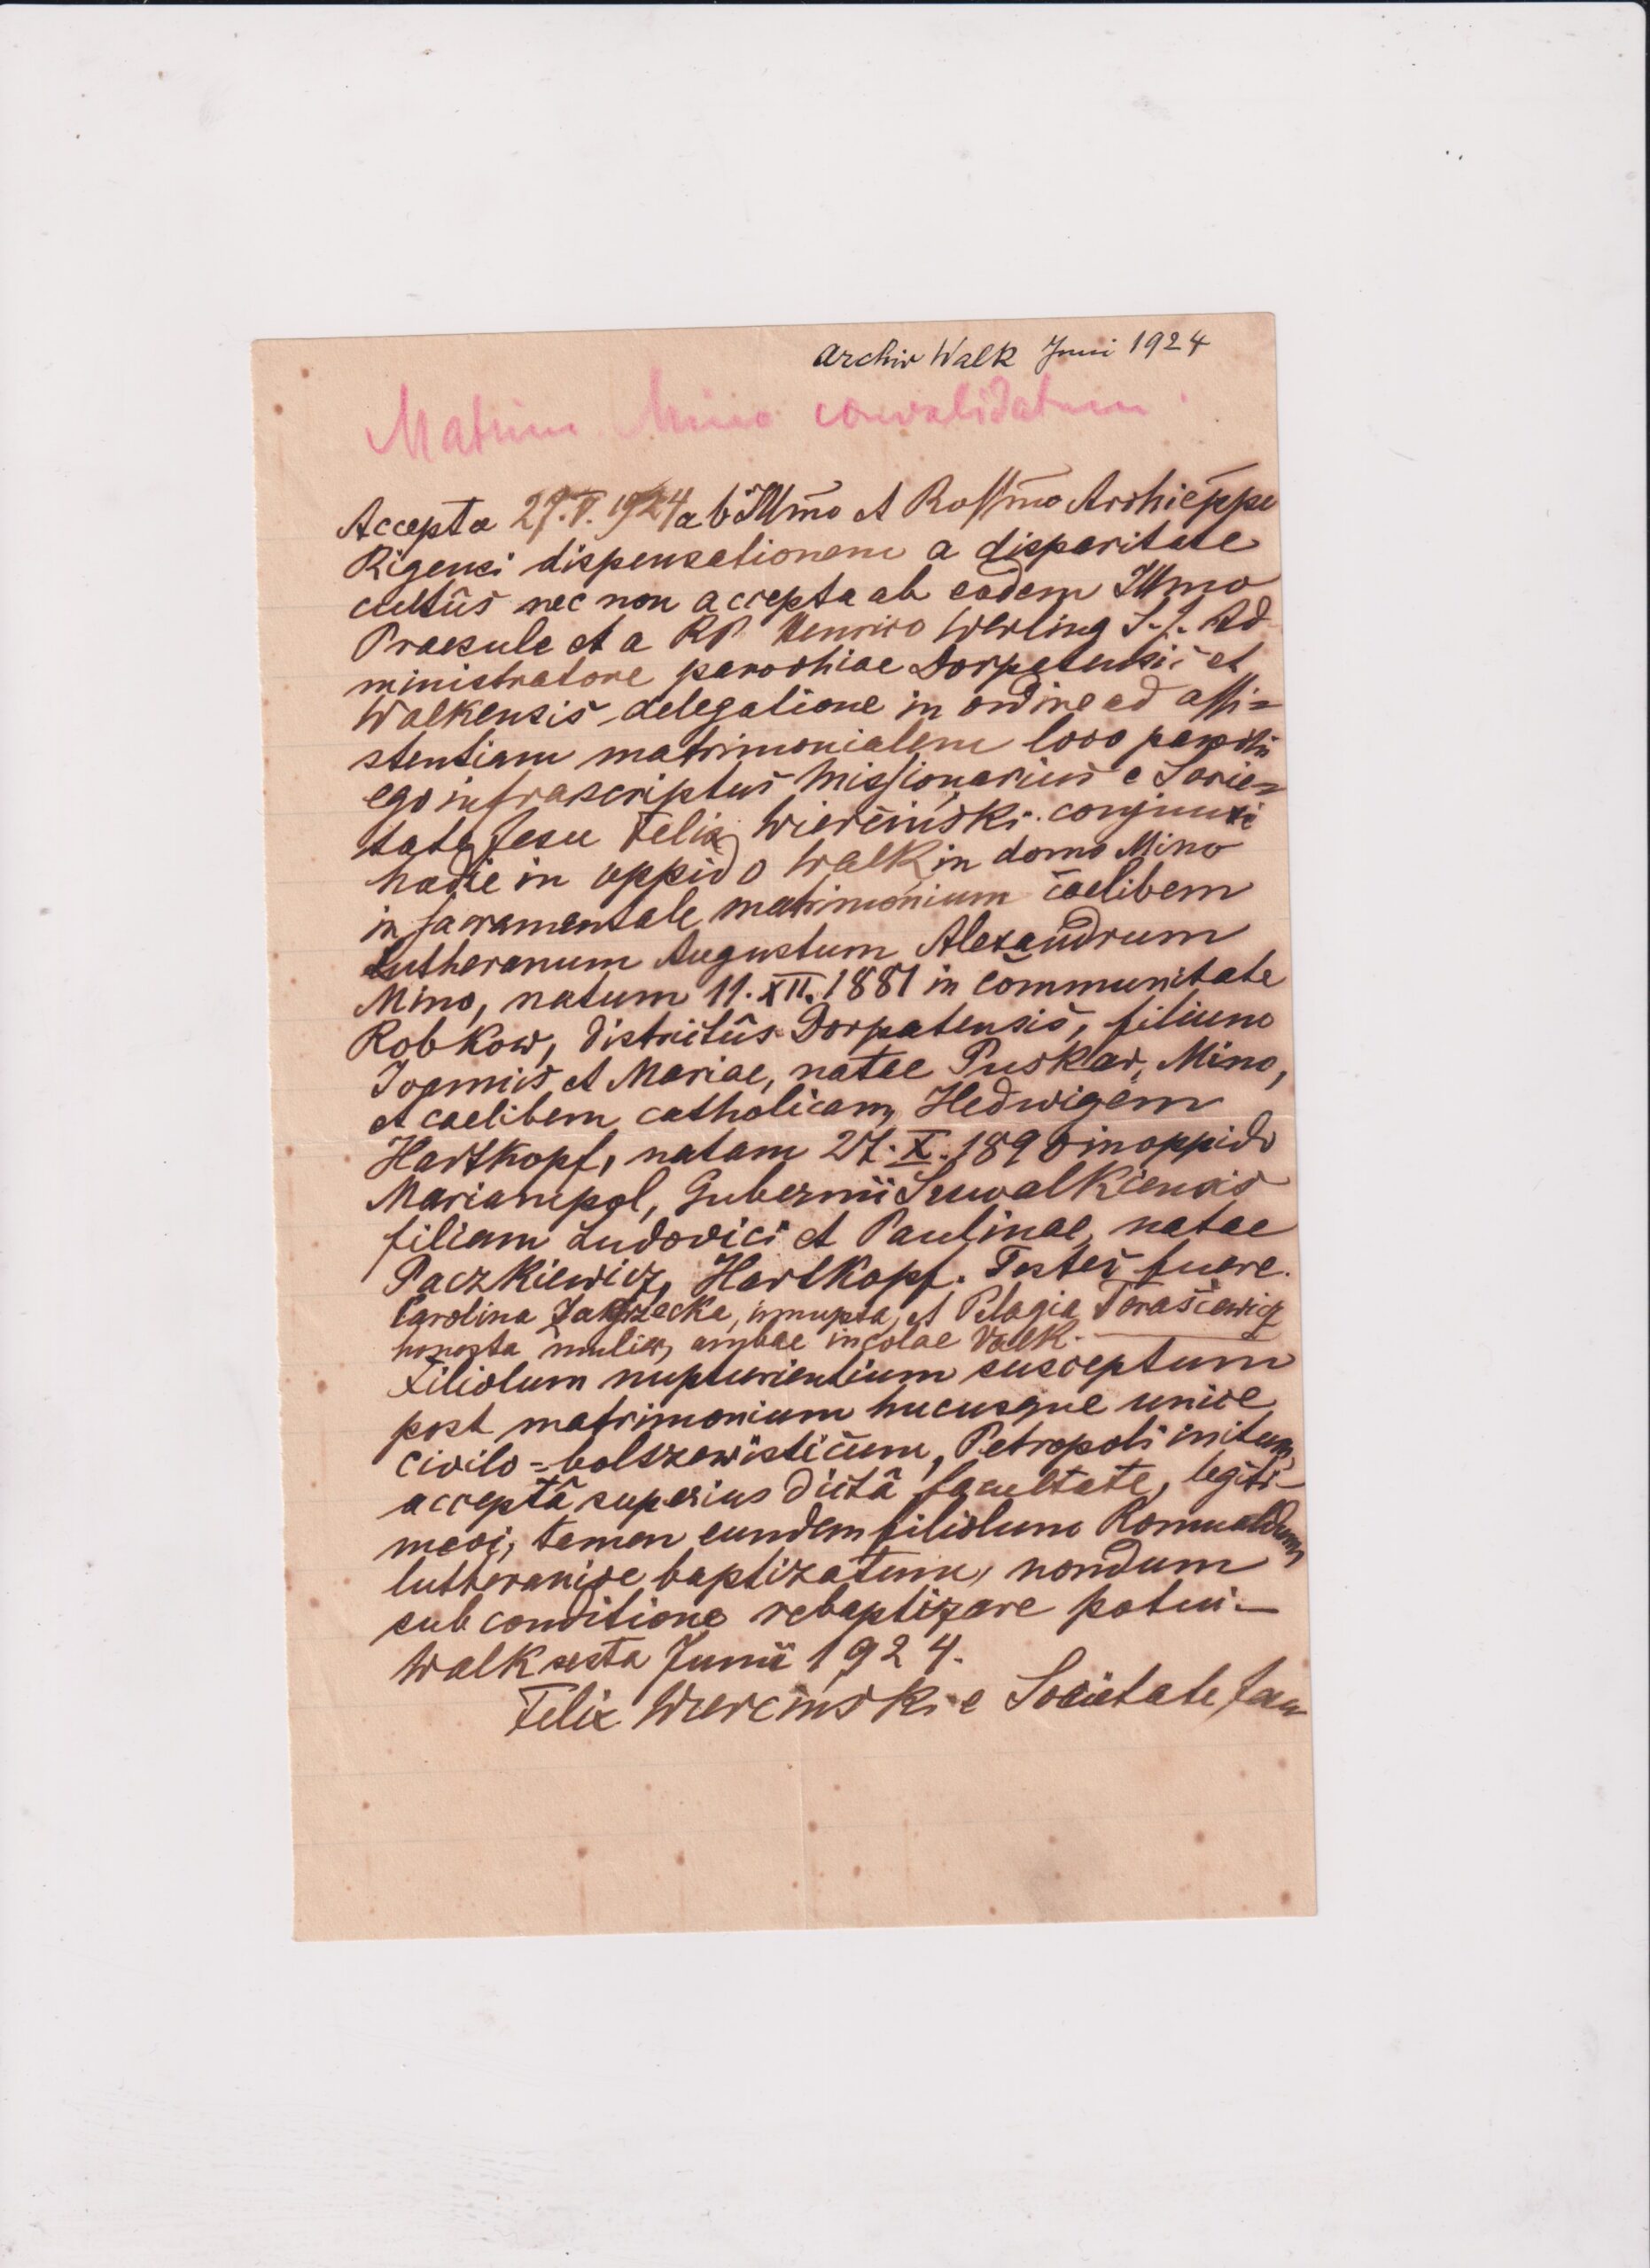 Archiv Walk Juni 1924
Matrim. Mino convalidatum.
Accepta 27.V.1924 ab Illmo et Rvssmo Archieppo
Rigensi dispensationem a disparitate
cultûs nec non accepta ab eodem Illmo
Praesule et a RP Henrico Werling S.J. Ad
ministratore parochiae Dorpatensis et
Walkensis delegatione in ordine ad assi=
stentiam matrimonialem loco parochi
ego infrascriptus Missionarius e Socie=
tate Jesu Felix Wierciński conjunxi
hodie in oppido Walk in domo Mino
in sacramentale matrimonium caelibem
Lutheranum Augustum Alexandrum
Mino, natum 11.XII.1881 in communitate
Robkow, districtûs Dorpatensis, filium
Joannis et Mariae, natae Puskar, Mino,
et caelibem catholicam Hedwigem
Hartkopf, natam 27.X.1890 in oppido
Mariampol, Gubernii Suwalkiensis
filiam Ludovici et Paulinae, natae
Paczkiewicz, Hartkopf. Testes fuere.
Carolina, innupta, et Pelagia Tarasiewicz
honesta mulier, ambae incolae Valk.
Filiolum nupturientium susceptum
post matrimonium hucusque unice
civilo=bolszewisticum, Petropoli initum,
acceptâ superius dictâ facultate, legiti-
mavi, tamen eundem filiolum Romualdum
lutheranice baptizatum, nondum
sub conditione rebaptizare potui.—
Walk sexta Junii 1924.
Felix Wierciński e Societate Jesu